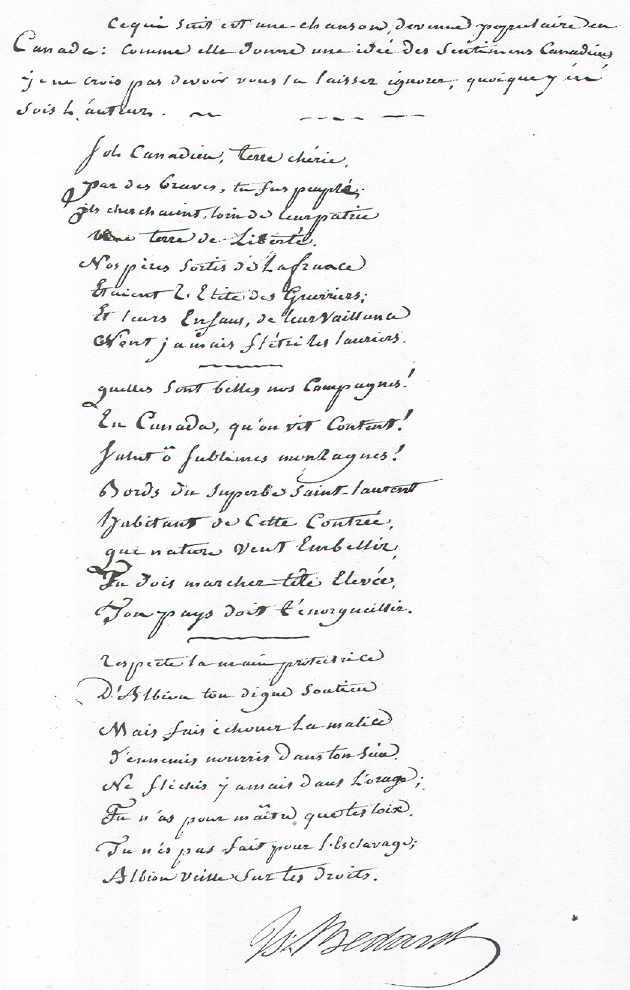 Ce qui suit est une chanson, devenue populaire en
Canada: comme elle donne une idée des sentimens Canadiens
je ne crois pas devoir vous la laisser ignorer, quoique j'en
sois l'auteur.
Sol Canadien, terre chérie,
par des braves, tu fus peuplé;
ils cherchaient, loin de leur patrie
une terre de Liberté.
Nos pères sortis de La france
Etaient l'Elite des Guerriers;
Et leurs Enfans, de leur Vaillance
N'ont jamais flétri les lauriers.
quelles sont belles nos Campagnes!
En Canada, qu'on vit Content!
Salut ô sublimes montagnes!
Bords du superbe Saint-laurent
habitant de Cette Contrée,
que nature veut Embellir,
Tu dois marcher tête Elevée,
Ton pays doit t'enorgueillir.
respecte la main protectrice
D'Albion ton digne soutien
Mais fais échouer la malice
d'ennemis nourris dans ton sein.
Ne fléchis jamais dans L'orage;
Tu n'as pour maître que les loix.
Tu n'es pas fait pour l'Esclavage;
Albion veille sur tes droits.
Bedard